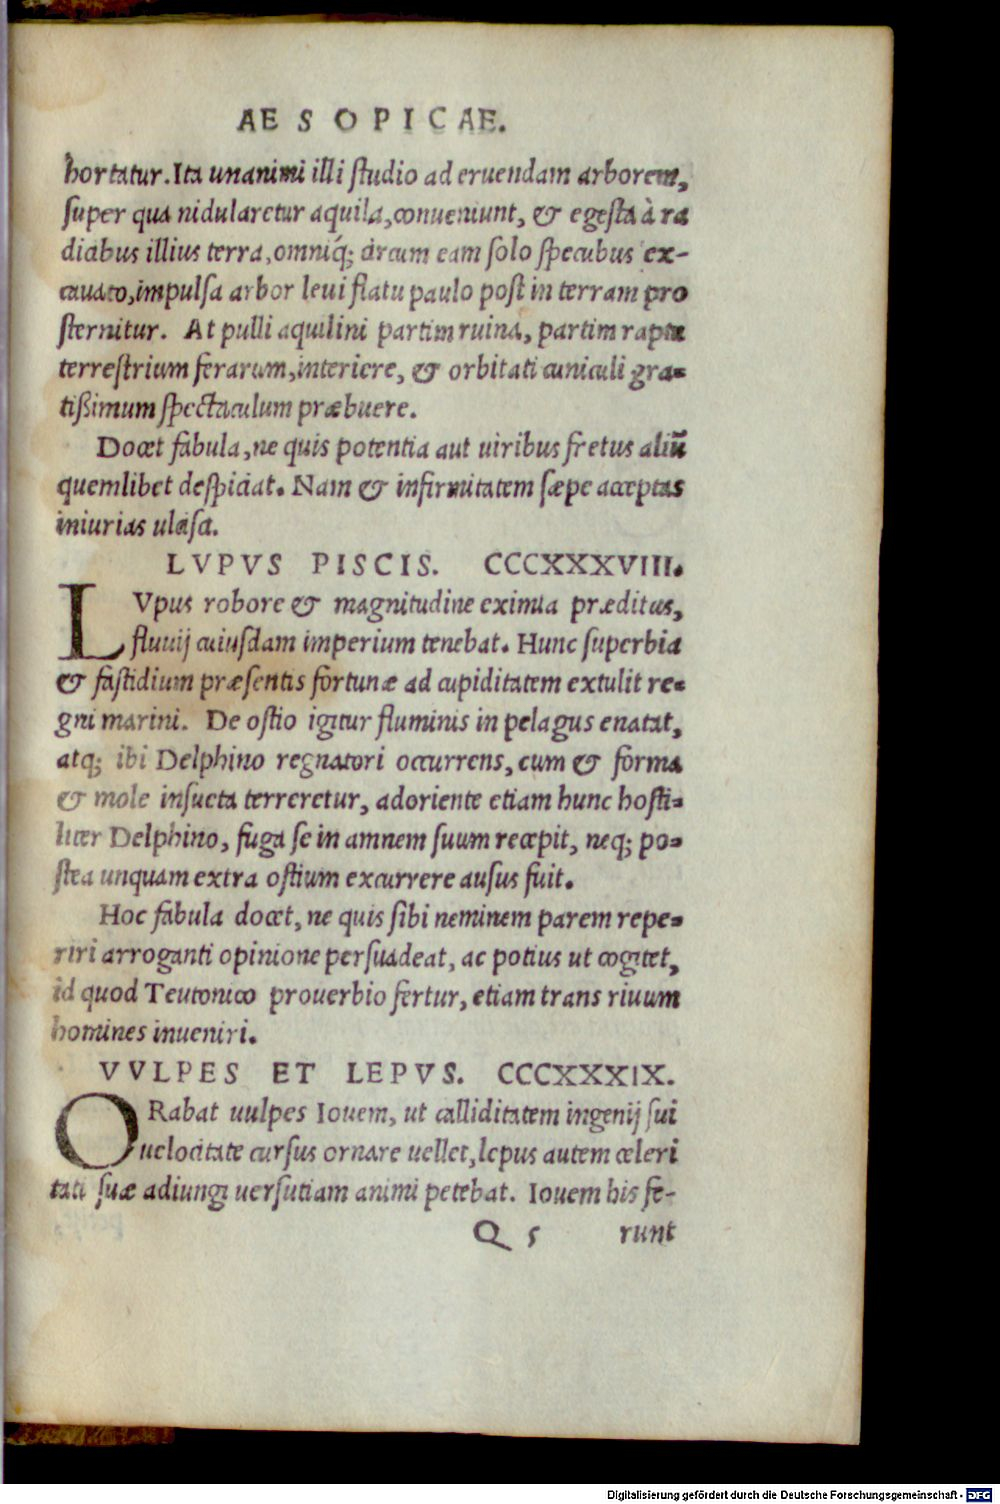 AESOPICAE.
hortatur. Ita unanimi illi studio ad eruendam arborem,
super qua nidularetur aquila, conueniunt, & egesta à ra
dicibus illius terra, omniq́; circum eam solo specubus ex-
cauato, impulsa arbor leui flatu paulo post in terram pro
sternitur. At pulli aquilini partim ruina, partim raptu
terrestrium ferarum, interiere, & orbitati cuniculi gra-
tißimum spectaculum præbuere.
Docet fabula, ne quis potentia aut uiribus fretus aliũ
quemlibet despiciat. Nam & infirmitatem sæpe acceptas
iniurias ulcisci.
LVPVS PISCIS. CCCXXXVIII.
LVpus robore & magnitudine eximia præditus,
fluuij cuiusdam imperium tenebat. Hunc superbia
& fastidium præsentis fortunæ ad cupiditatem extulit re-
gni marini. De ostio igitur fluminis in pelagus enatat,
atq; ibi Delphino regnatori occurrens, cum & forma
& mole insueta terreretur, adoriente etiam hunc hosti-
liter Delphino, fuga se in amnem suum recepit, neq; po-
stea unquam extra ostium excurrere ausus fuit.
Hoc fabula docet, ne quis sibi neminem parem repe-
riri arroganti opinione persuadeat, ac potius ut cogitet,
id quod Teutonico prouerbio fertur, etiam trans riuum
homines inueniri.
VVLPES ET LEPVS. CCCXXXIX.
ORabat uulpes Iouem, ut calliditatem ingenij sui
uelocitate cursus ornare uellet, lepus autem celeri
tati suæ adiungi uersutiam animi petebat. Iouem his fe-
Q 5 runt
Digitalisierung gefördert durch die Deutsche Forschungsgemeinschaft - DFG